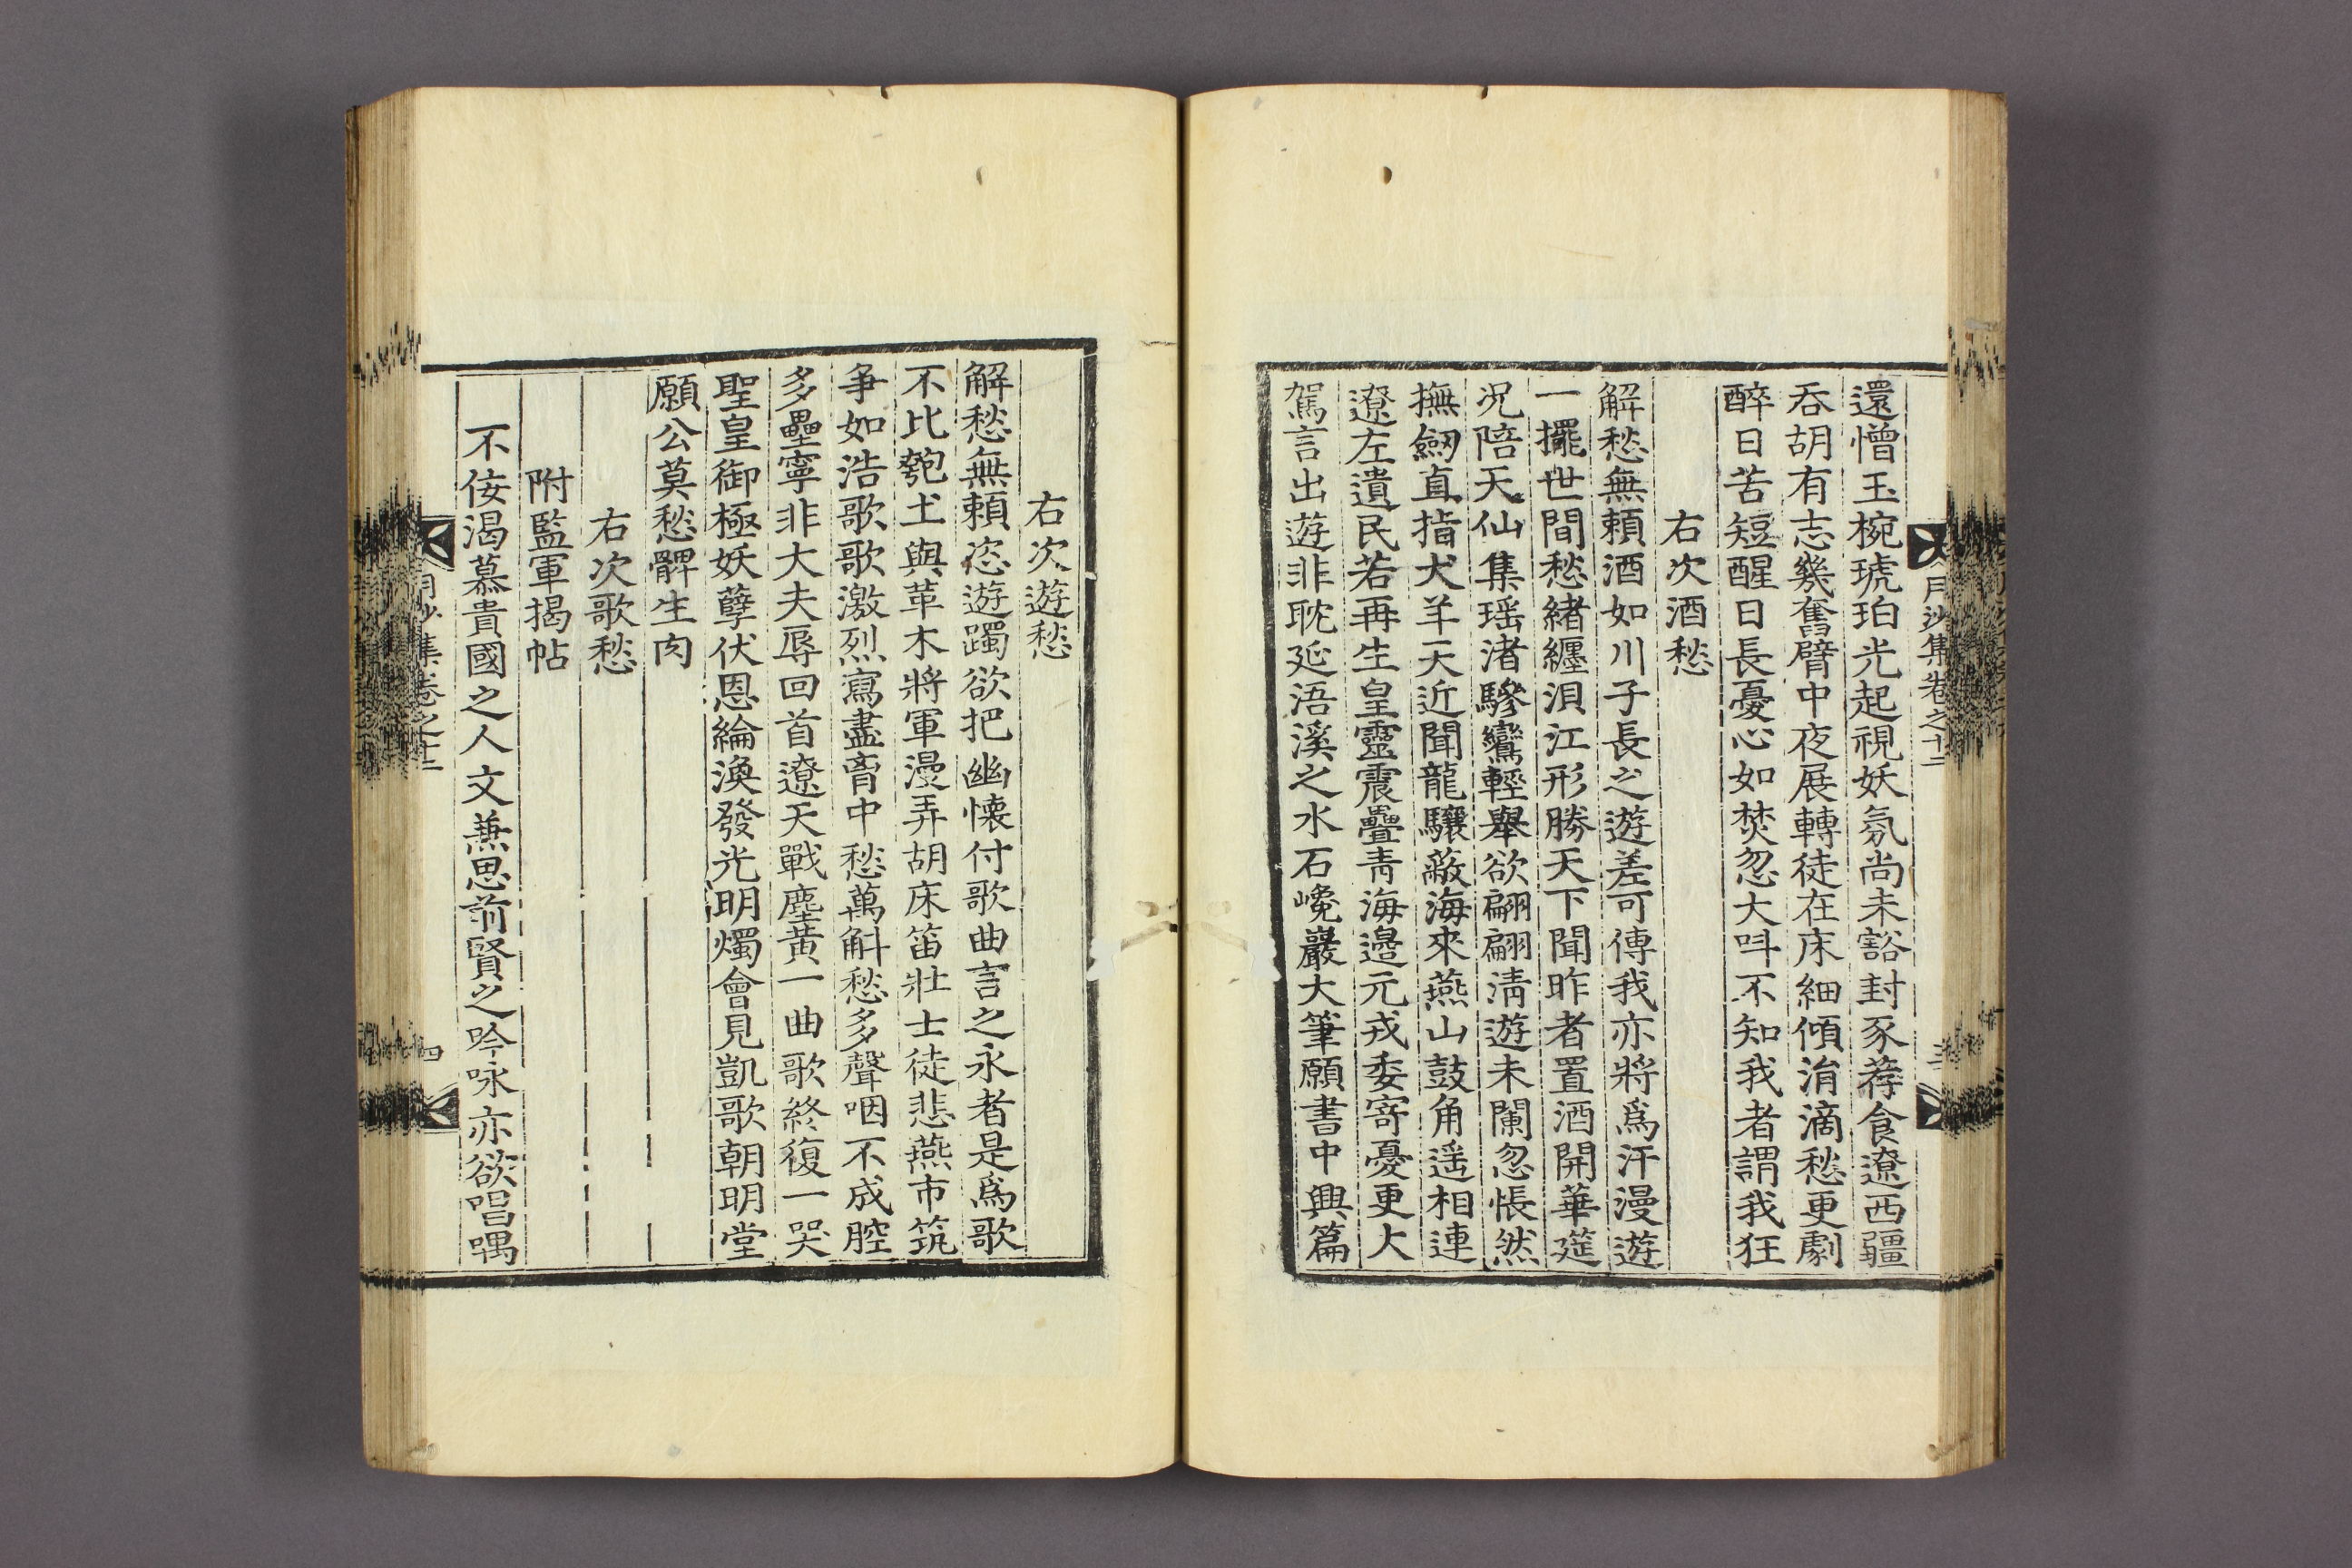 月沙集卷之十二
還憎玉椀琥珀光起視妖氛尚未豁封豕荐食遼西疆
吞胡有志幾奮臂中夜展轉徒在床細傾涓滴愁更劇
醉日苦短醒日長憂心如焚忽大呌不知我者謂我狂
右次酒愁
解愁無頼酒如川子長之遊差可傳我亦將爲汗漫遊
一擺世間愁緖纏浿江形勝天下聞昨者置酒開華筵
况陪天仙集瑶渚驂鸞輕舉欲翩翩淸遊未闌忽悵然
撫劒直指犬羊天近聞龍驤蔽海來燕山鼓角遥相連
遼左遺民若再生皇靈震疊靑海邉元戎委寄憂更大
駕言出遊非耽延浯溪之水石巉巖大筆願書中興篇
右次遊愁
解愁無頼恣遊躅欲把幽懷付歌曲言之永者是爲歌
不比匏土與革木將軍漫弄胡床笛壯士徒悲燕市筑
争如浩歌歌激烈寫盡胷中愁萬斛愁多聲咽不成腔
多壘寧非大夫辱回首遼天戰塵黃一曲歌終復一哭
聖皇御極妖孽伏恩綸渙發光明燭會見凱歌朝明堂
願公莫愁髀生肉
右次歌愁
附監軍揭帖
不侫渴慕貴國之人文兼思前賢之吟咏亦欲唱喁
月沙集卷之十二
四